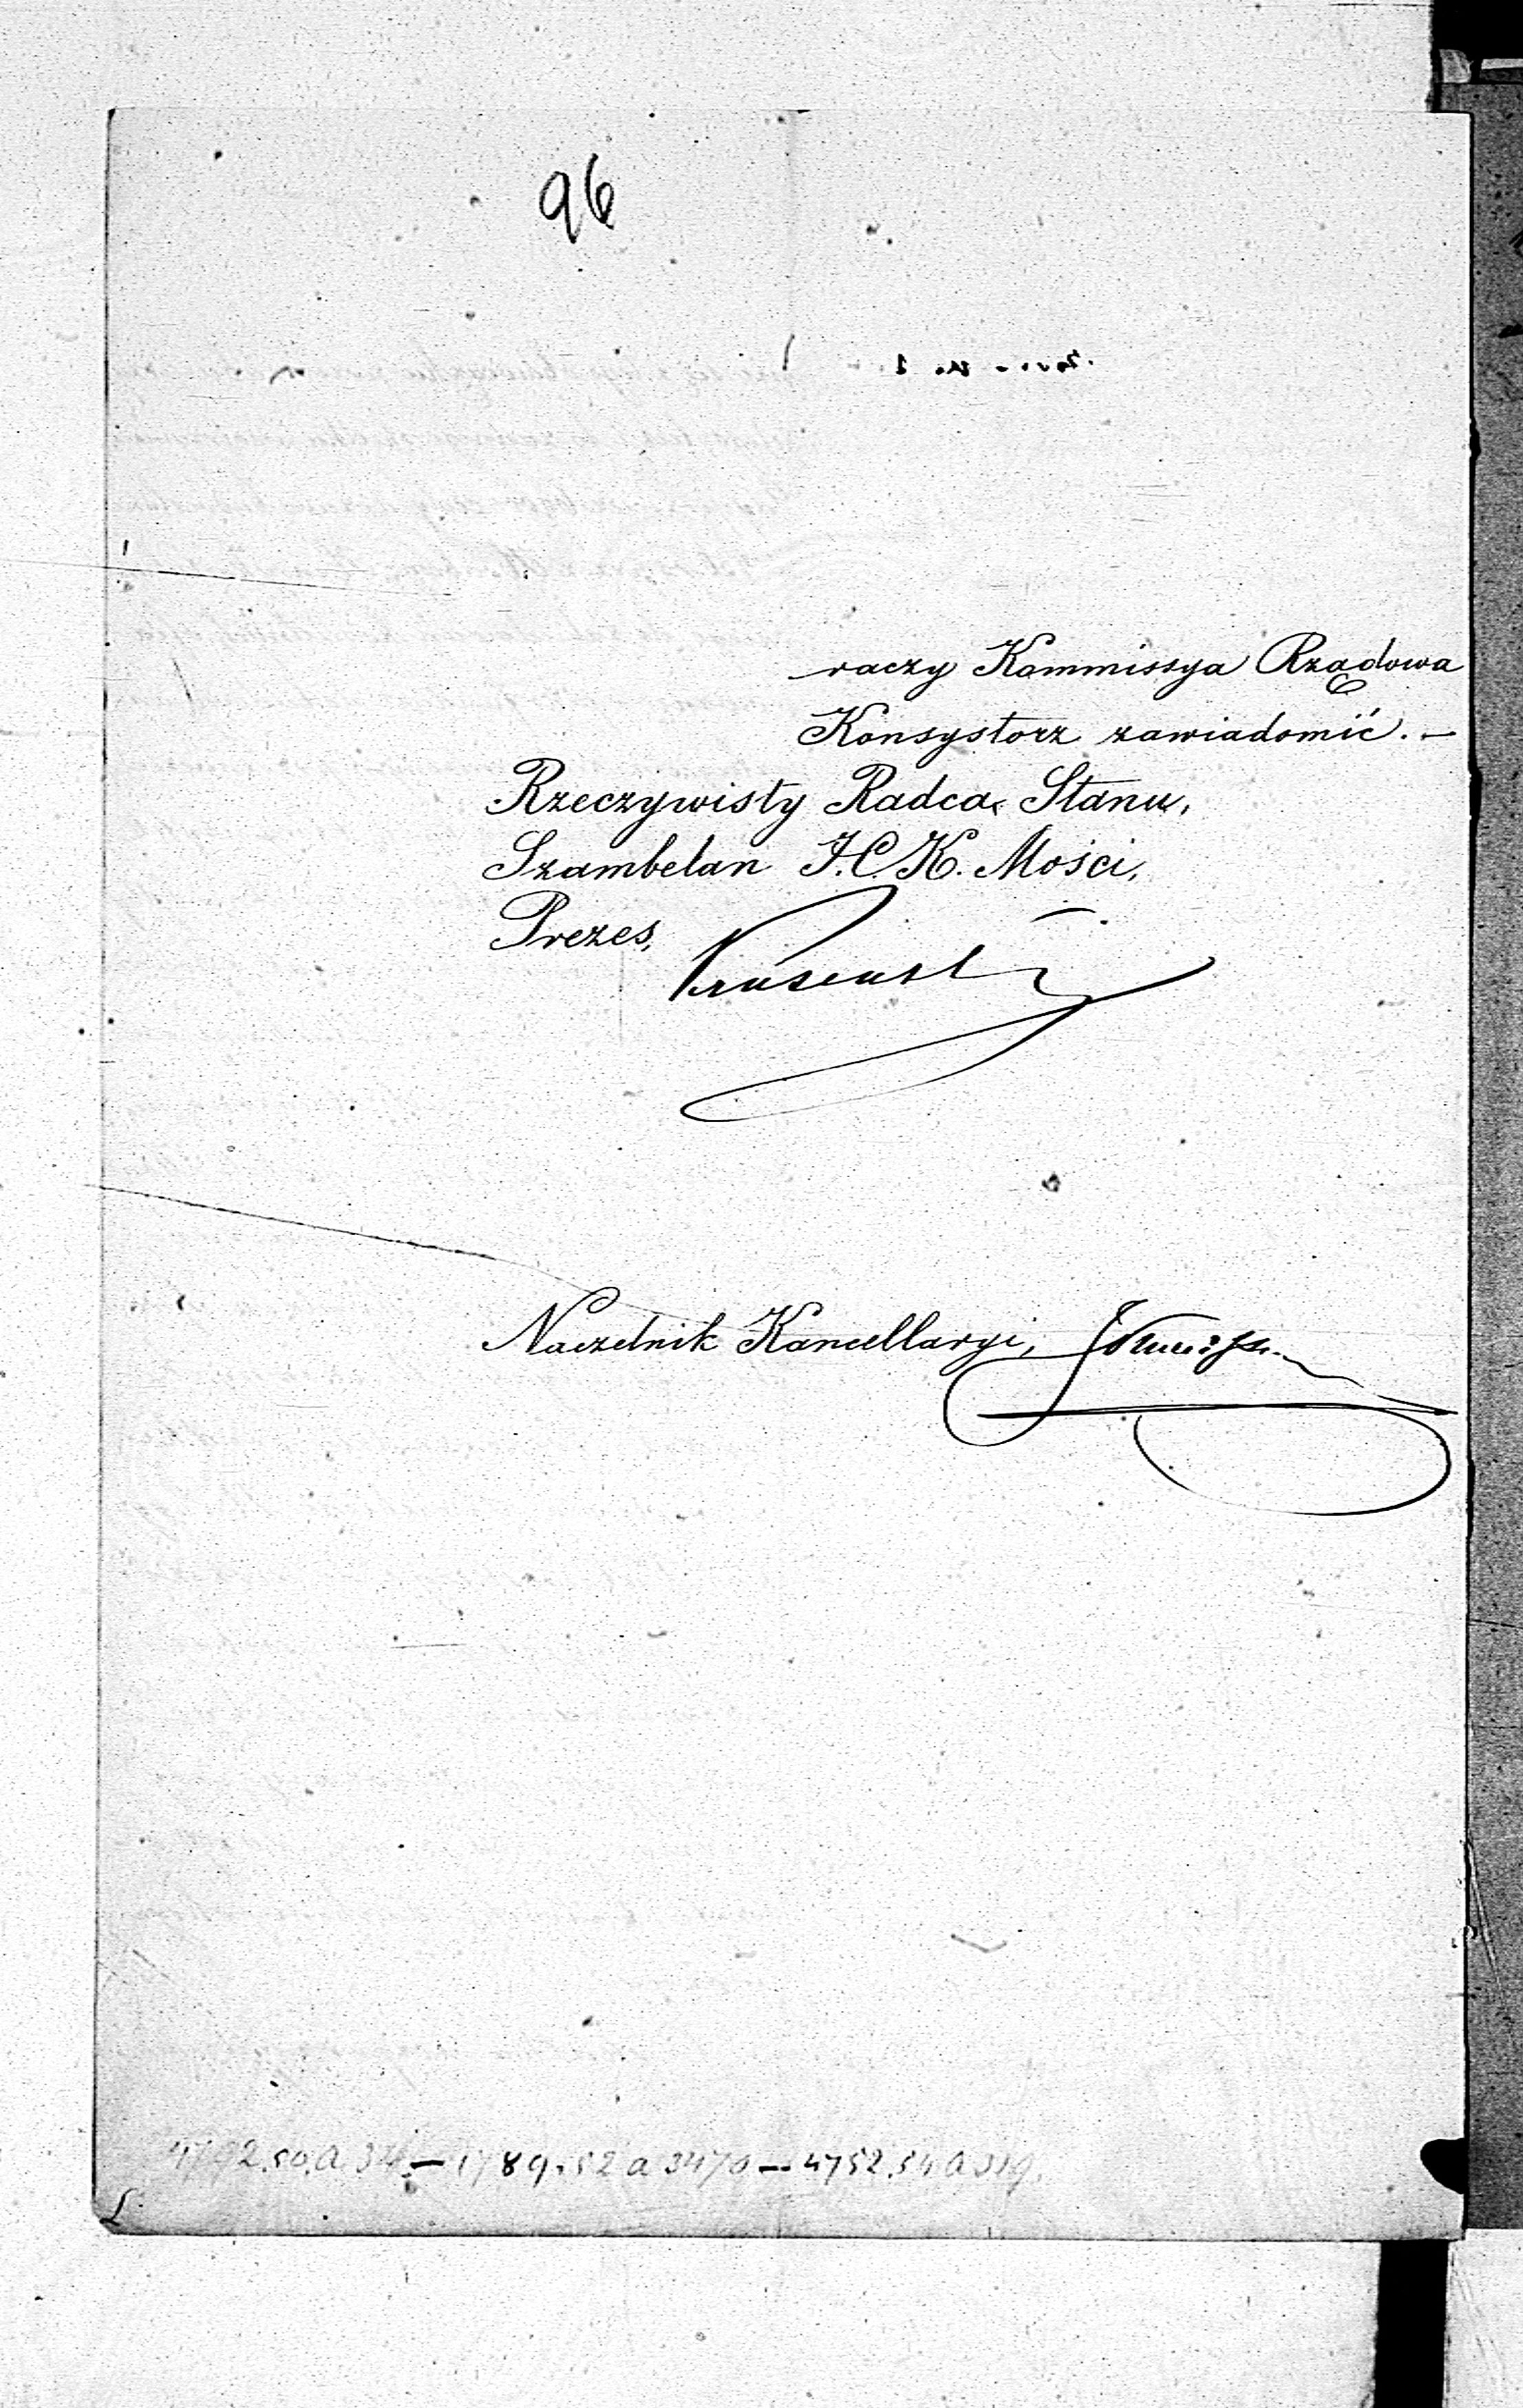 96
raczy Kommissya Rządowa
Konsystorz zawiadomić. —
Rzeczywisty Radca Stanu,
Szambelan J. C. K. Mości,
Prezes,
Naczelnik Kancellaryi,
1789.52 a 3470 — 4752.54 a 319.